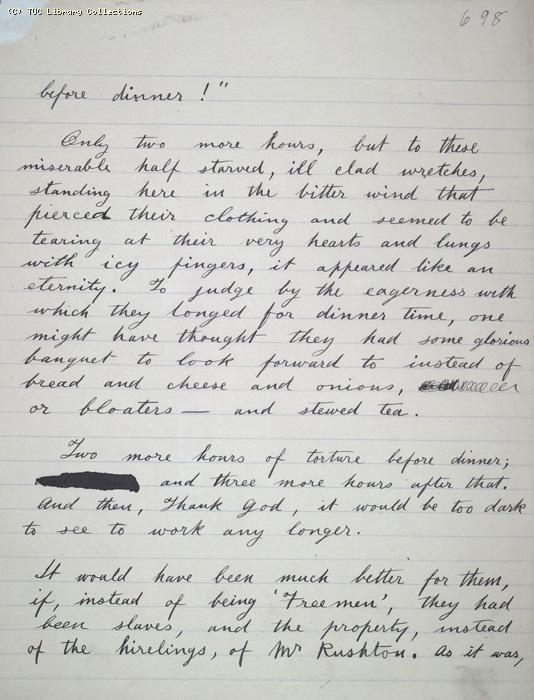 (C) TUC Library Collections
698
before dinner!"
Only two more hours, but to these
miserable half starved, ill clad wretches,
standing here in the bitter wind that
pierced their clothing and seemed to be
tearing at their very hearts and lungs
with icy fingers, it appeared like an
eternity. To judge by the eagerness with
which they longed for dinner time, one
might have thought they had some glorious
banquet to look forward to instead of
bread and cheese and onions,
or bloaters — and stewed tea.
Two more hours of torture before dinner;
and three more hours after that.
And then, Thank God, it would be too dark
to see to work any longer.
It would have been much better for them,
if, instead of being 'Freemen', they had
been slaves, and the property, instead
of the hirelings, of Mr Rushton. As it was,